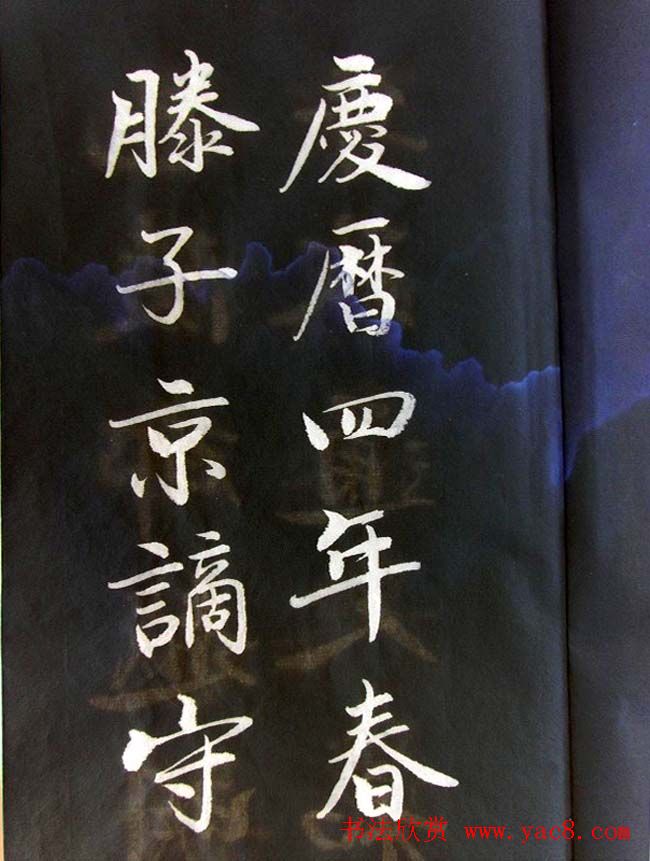 慶暦四年春
滕子京謫守
书法欣赏 www.yac8.com